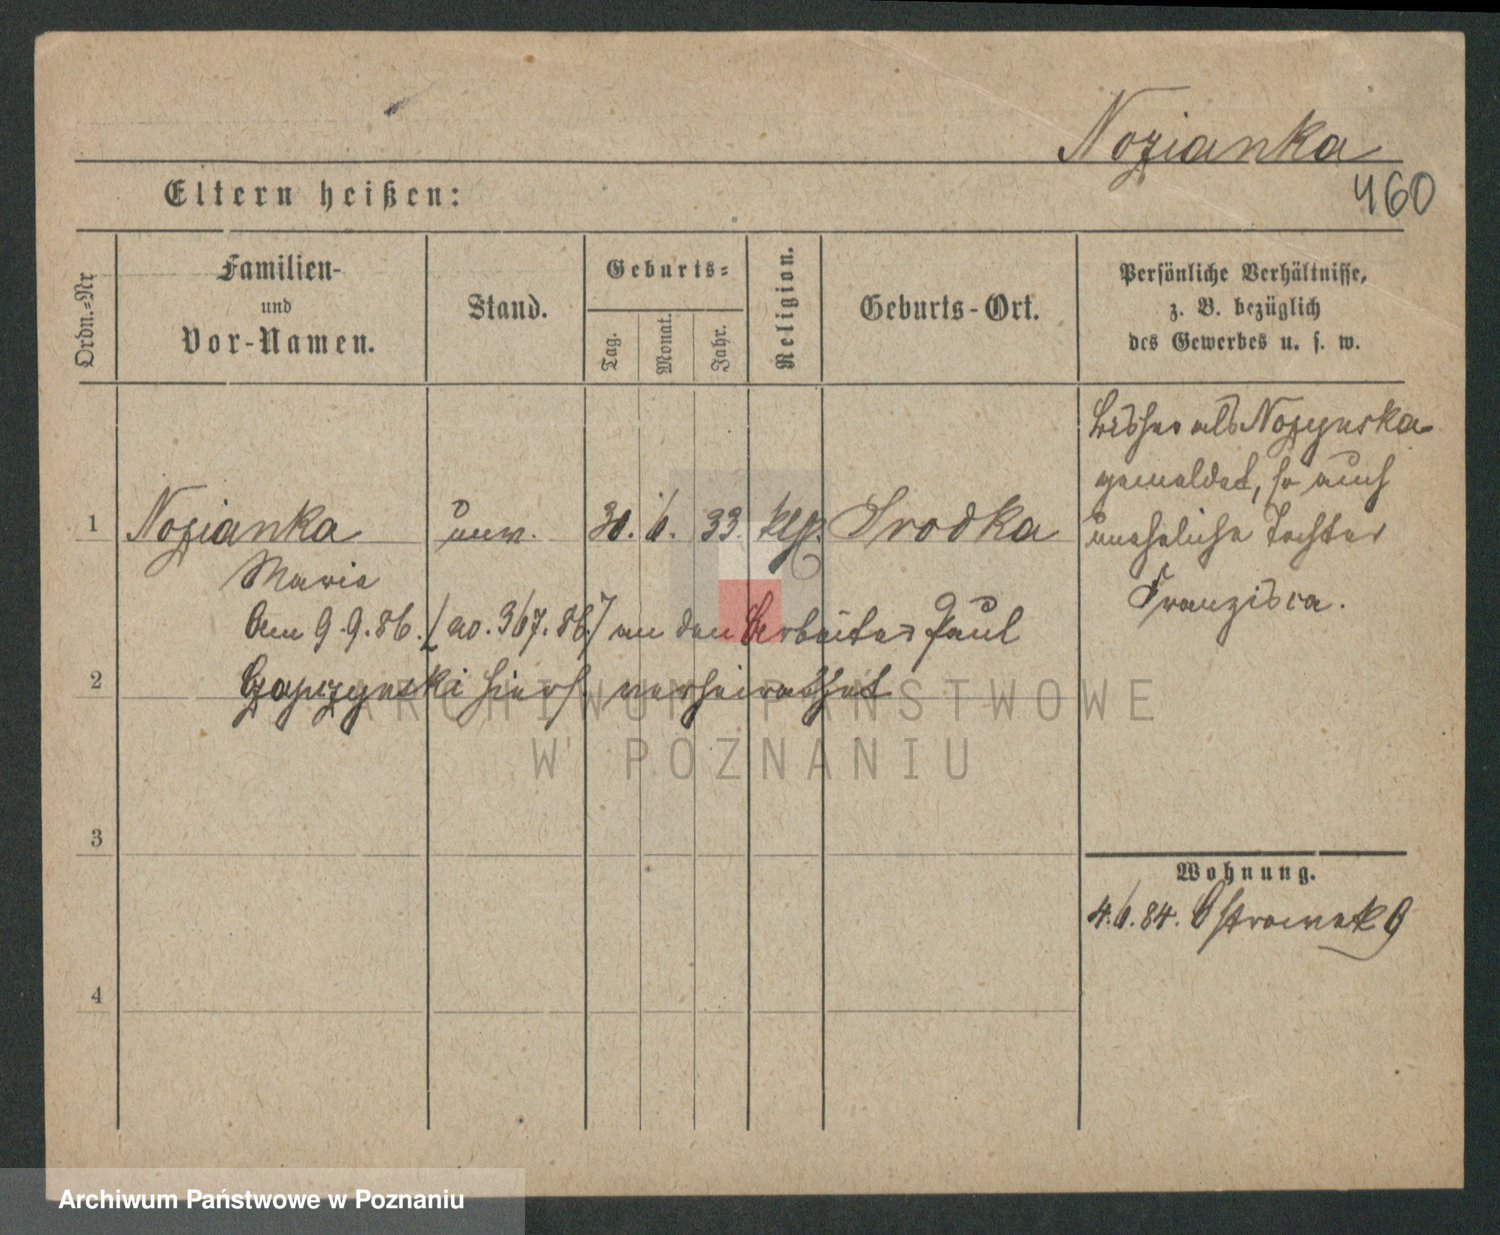 Nozianka
460
Eltern heißen:
Ordn.-Nr
Familien-
und
Vor-Namen.
Stand.
Geburts-
Tag.
Monat.
Jahr.
Religion.
Geburts-Ort.
Persönliche Verhältnisse,
z. B. bezüglich
des Gewerbes u. s. w.
1
Nozianka
unv.
30. 6. 33.
Srodka
Maria
Am 9.9.86. [ao. 367.86.] an den Arbeiter Paul
2
hiers. verheirathet
bisher als Nozynska
gemeldet, so auch
uneheliche Tochter
Franziska.
3
4
Wohnung.
4.6.84. Ostrowek 9
ARCHIWUM PAŃSTWOWE
W POZNANIU
Archiwum Państwowe w Poznaniu